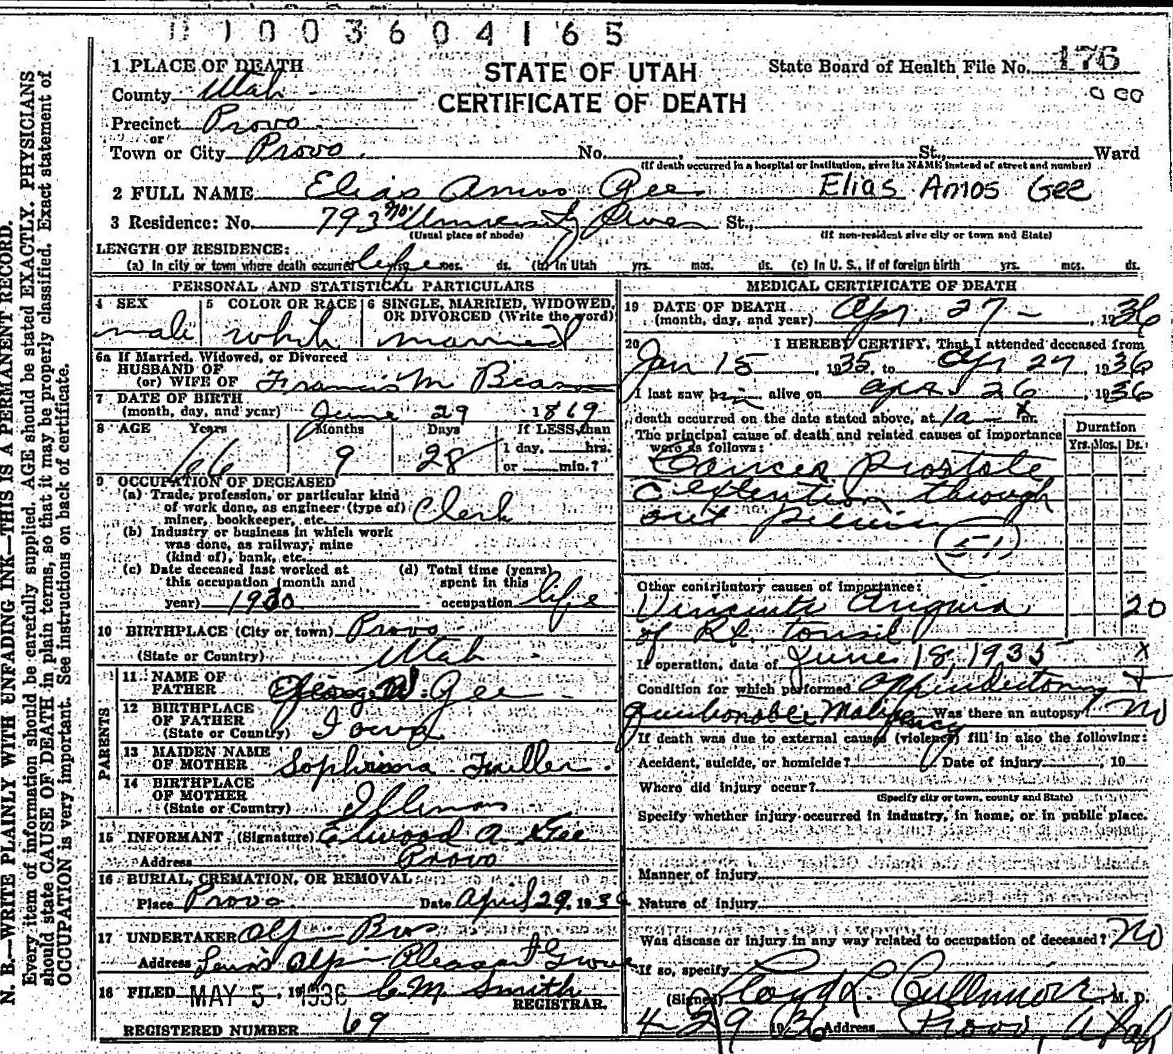 D 1 0 0 3 6 0 4 1 6 5
1 PLACE OF DEATH
County Utah
Precinct Provo
or
Town or City Provo. No. St., Ward
(If death occurred in a hospital or institution, give its NAME instead of street and number)
STATE OF UTAH
CERTIFICATE OF DEATH
State Board of Health File No. 176
2 FULL NAME Elias Amos Gee Elias Amos Gee
3 Residence: No. 793 no University St.,
(Usual place of abode) (If non-resident give city or town and State)
LENGTH OF RESIDENCE:
(a) In city or town where death occurred life mos. ds. (b) In Utah yrs. mos. ds. (c) In U. S., if of foreign birth yrs. mos. ds.
PERSONAL AND STATISTICAL PARTICULARS
4 SEX 5 COLOR OR RACE 6 SINGLE, MARRIED, WIDOWED,
OR DIVORCED (Write the word)
male white married
6a If Married, Widowed, or Divorced
HUSBAND OF
(or) WIFE OF Francis M
7 DATE OF BIRTH
(month, day, and year) June 29 1869
8 AGE Years Months Days If LESS than
1 day, hrs.
66 9 28 or min.?
9 OCCUPATION OF DECEASED
(a) Trade, profession, or particular kind
of work done, as engineer (type of)
miner, bookkeeper, etc. Clerk
(b) Industry or business in which work
was done, as railway, mine
(kind of), bank, etc.
(c) Date deceased last worked at (d) Total time (years)
this occupation (month and spent in this
year) 1930 occupation life
10 BIRTHPLACE (City or town) Provo
(State or Country) Utah
PARENTS
11 NAME OF
FATHER George W. Gee
12 BIRTHPLACE
OF FATHER
(State or Country) Iowa
13 MAIDEN NAME
OF MOTHER Fuller
14 BIRTHPLACE
OF MOTHER
(State or Country) Illinois
15 INFORMANT (Signature) Elwood A. Gee
Address Provo
16 BURIAL, CREMATION, OR REMOVAL
Place Provo Date April 29, 1936
17 UNDERTAKER Bros
Address Pleasant Grove
18 FILED MAY 5, 1936 C M Smith
REGISTRAR.
REGISTERED NUMBER 69
MEDICAL CERTIFICATE OF DEATH
19 DATE OF DEATH
(month, day, and year) Apr. 27 - , 1936
20 I HEREBY CERTIFY, That I attended deceased from
Jan 15 , 1935, to Apr 27 , 1936
I last saw him alive on apr. 26 , 1936
death occurred on the date stated above, at 1 a m.
The principal cause of death and related causes of importance
were as follows:
Duration
Yrs. Mos. Ds.
Cancer Prostate
extention through
out pelvis
51
Other contributory causes of importance:
Vincents Angina 20
of Rt. tonsil
If operation, date of June 18, 1935
Condition for which performed
questionable Malignancy Was there an autopsy? No
If death was due to external causes (violence) fill in also the following:
Accident, suicide, or homicide? Date of injury , 19
Where did injury occur?
(Specify city or town, county and State)
Specify whether injury occurred in industry, in home, or in public place.
Manner of injury
Nature of injury
Was disease or injury in any way related to occupation of deceased? No
If so, specify
(Signed) Lloyd L. Cullimore M. D.
4-29 1936 Address Provo, Utah
N. B.—WRITE PLAINLY WITH UNFADING INK—THIS IS A PERMANENT RECORD.
Every item of information should be carefully supplied. AGE should be stated EXACTLY. PHYSICIANS
should state CAUSE OF DEATH in plain terms, so that it may be properly classified. Exact statement of
OCCUPATION is very important. See instructions on back of certificate.